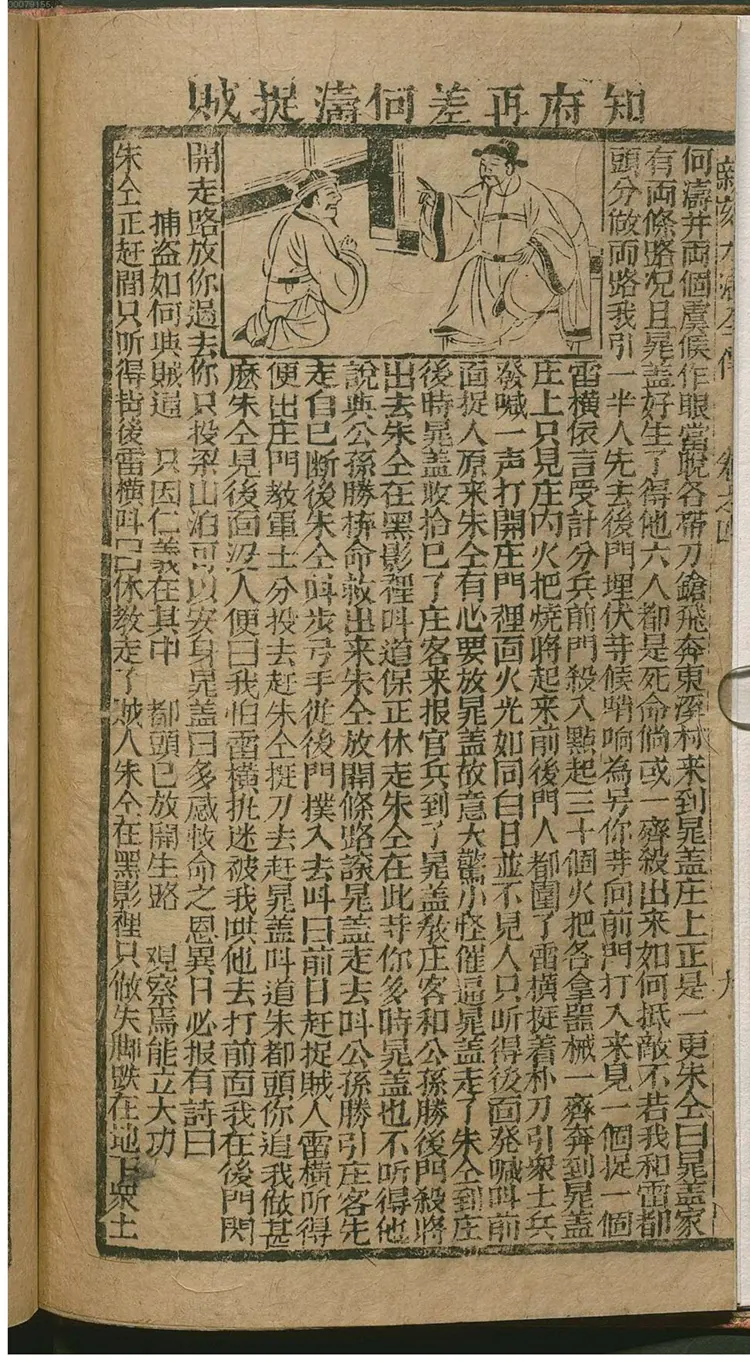 00079155
知府再差何濤捉賊
何濤并兩個虞候作眼當晚各帶刀鎗飛奔東溪村来到晁盖庄上正是一更朱仝曰晁盖家
有両條路况且晁盖好生了得他六人都是死命倘或一齊殺出来如何抵敵不若我和雷都
頭分做両路我引一半人先去後門埋伏䓁候哨响為号你䓁向前門打入来見一個捉一個
雷横依言受計分兵前門殺入點起三十個火把各拿噐械一齊奔到晁盖
庄上只見庄内火把烧將起来前後門人都圍了雷横挺着朴刀引衆土兵
發喊一声打開庄門裡面火光如同白日並不見人只听得後面発喊叫前
面捉人原来朱仝有心要放晁盖故意大驚小怪催逼晁盖走了朱仝到庄
後時晁盖收拾已了庄客来报官兵到了晁盖教庄客和公孫勝後門殺將
出去朱仝在黑影裡叫道保正休走朱仝在此䓁你多時晁盖也不听得他
說與公孫勝捹命救出来朱仝放開條路讓晁盖走去叫公孫勝引庄客先
走自已断後朱仝叫步弓手従後門撲入去叫曰前日赶捉賊人雷横所得
便出庄門教軍士分投去赶朱仝挺刀去赶晁盖叫道朱都頭你追我做甚
麽朱仝見後面沒人便曰我怕雷横扰迷被我哄他去打前面我在後門閃
開走路放你過去你只投梁山泊可以安身晁盖曰多感救命之恩異日必报有詩曰
捕盗如何與賊通 只因仁義在其中 都頭已放開生路 观察焉能立大功
朱仝正赶間只听得背後雷横叫曰休教走了賊人朱仝在黑影裡只做失脚跌在地下衆土